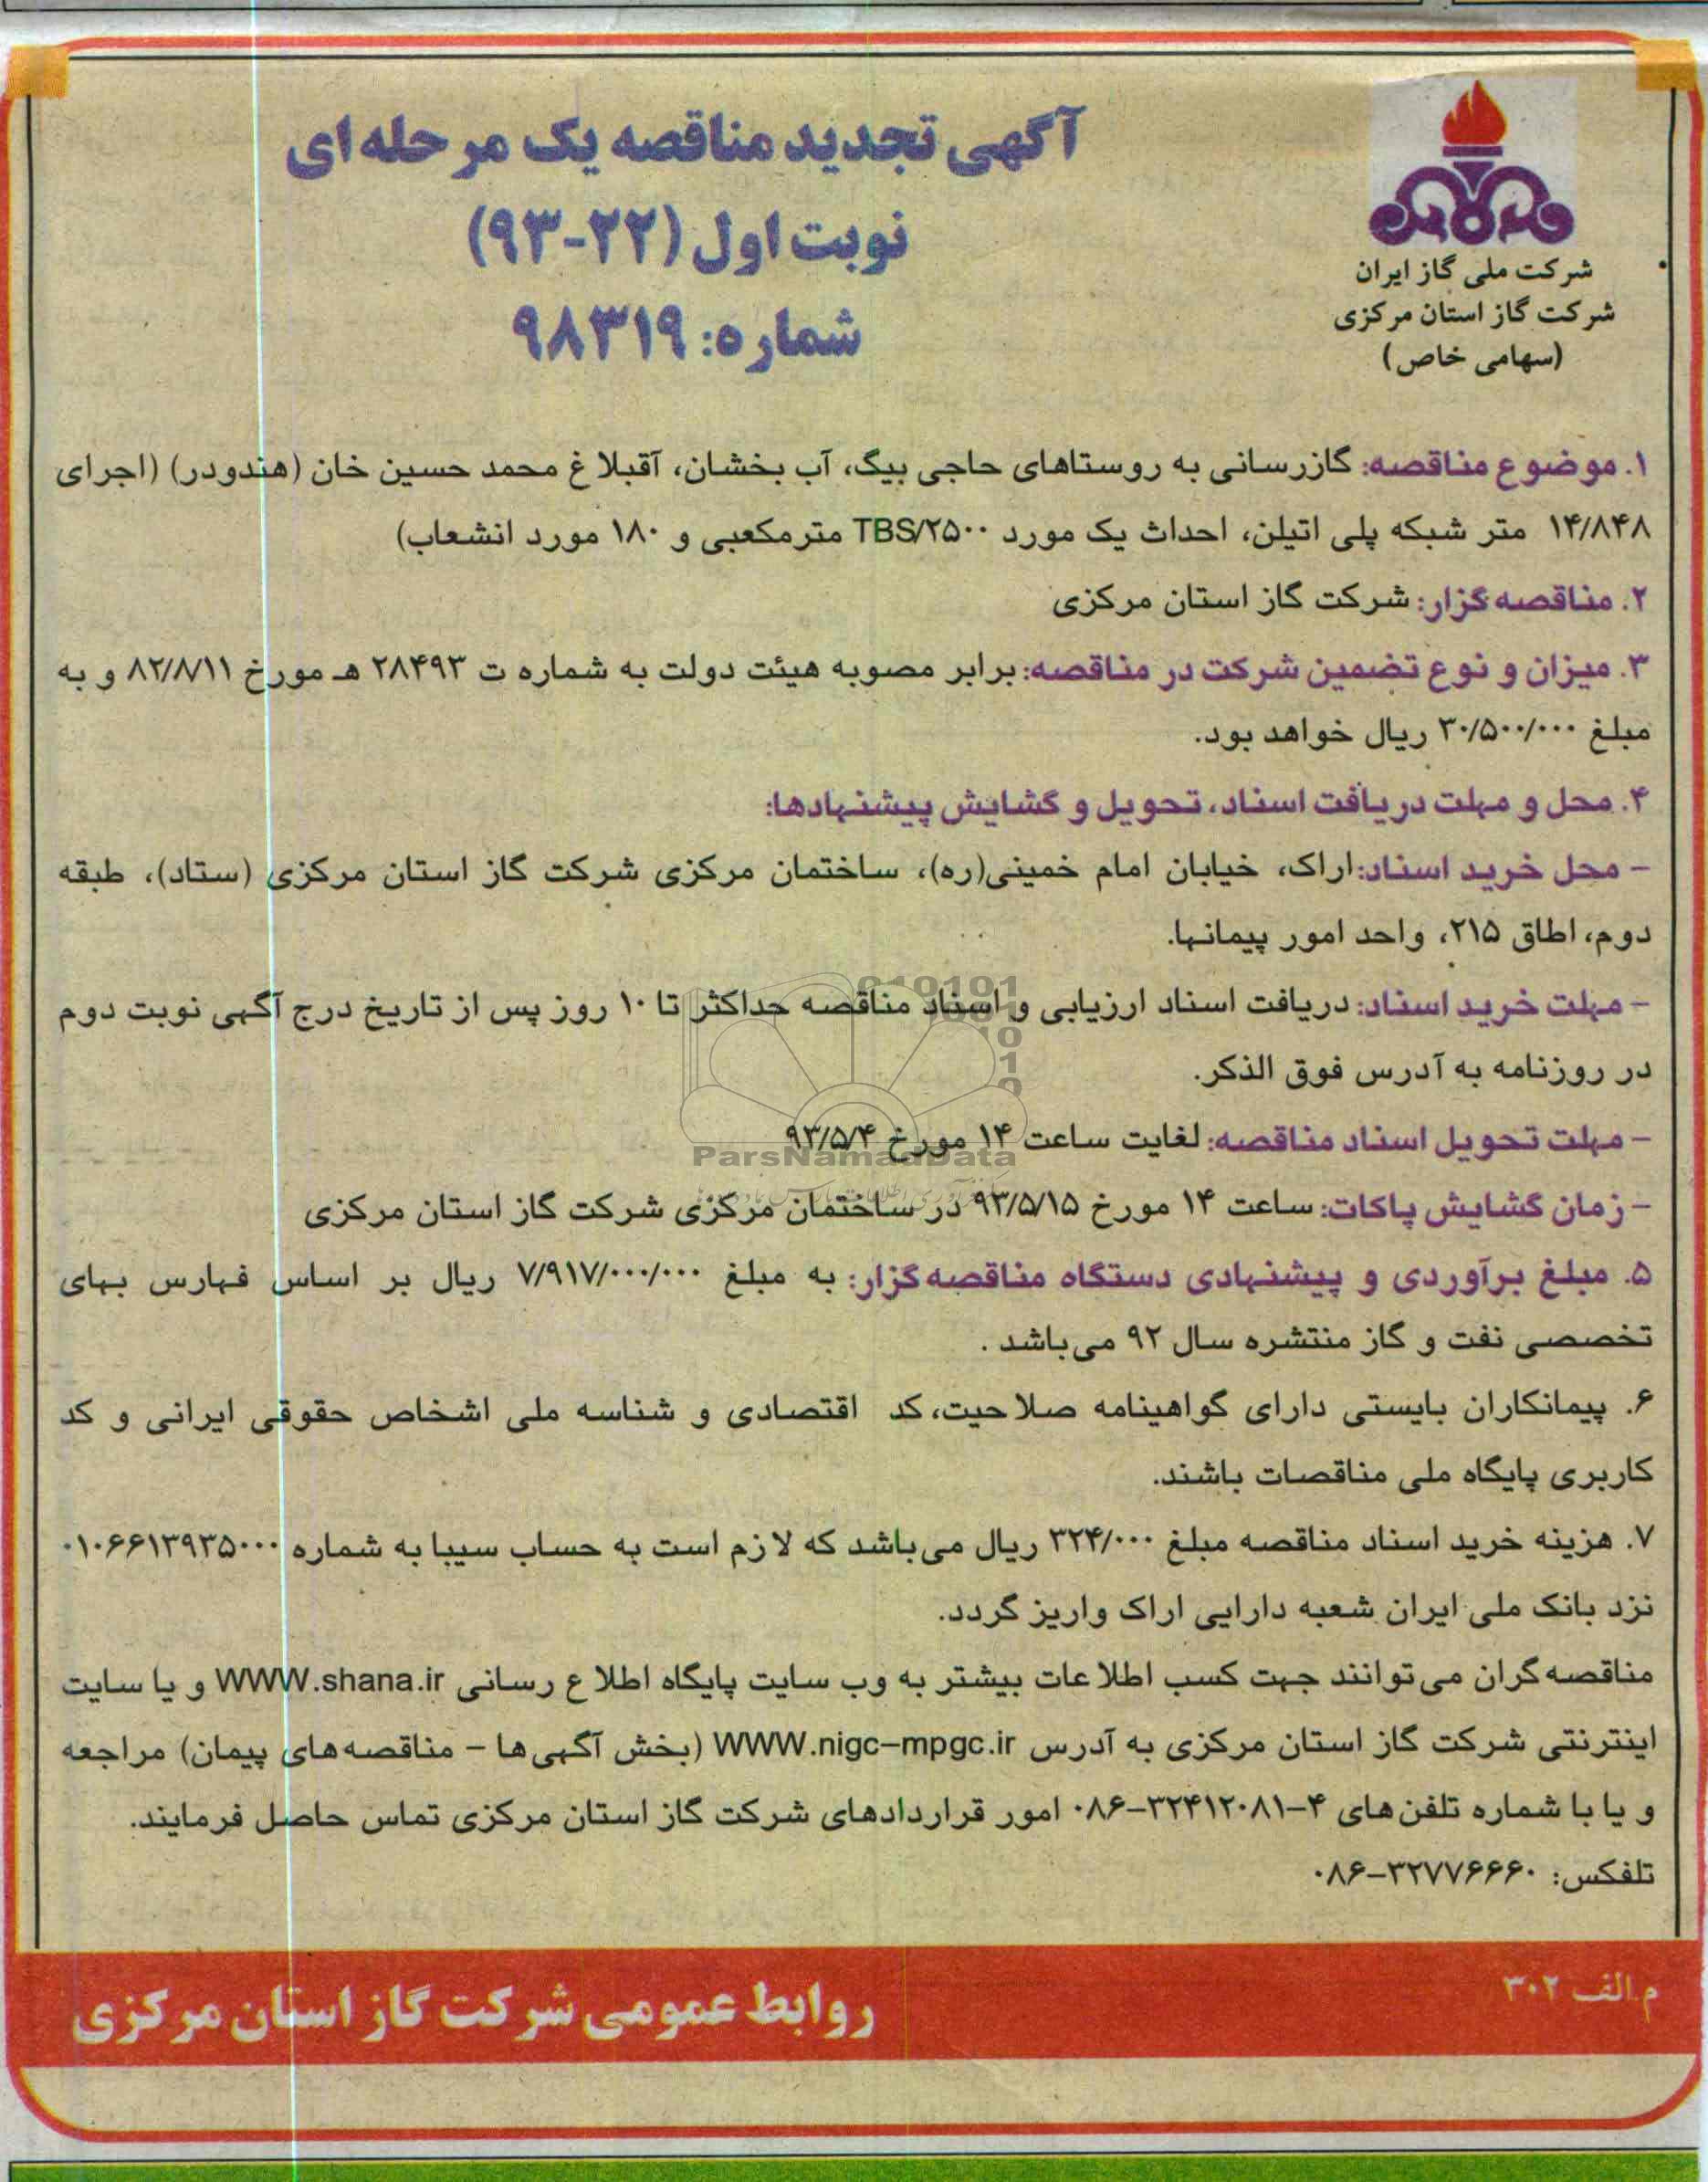 شرکت ملی گاز ایران
شرکت گاز استان مرکزی
(سهامی خاص)
آگهی تجدید مناقصه یک مرحله‌ای
نوبت اول (۲۲-۹۳)
شماره: ۹۸۳۱۹
۱. موضوع مناقصه: گازرسانی به روستاهای حاجی بیگ، آب بخشان، آقبلاغ محمد حسین خان (هندودر) (اجرای
۱۴/۸۴۸ متر شبکه پلی اتیلن، احداث یک مورد TBS/۲۵۰۰ مترمکعبی و ۱۸۰ مورد انشعاب)
۲. مناقصه‌گزار: شرکت گاز استان مرکزی
۳. میزان و نوع تضمین شرکت در مناقصه: برابر مصوبه هیئت دولت به شماره ت ۲۸۴۹۳ هـ مورخ ۸۲/۸/۱۱ و به
مبلغ ۳۰/۵۰۰/۰۰۰ ریال خواهد بود.
۴. محل و مهلت دریافت اسناد، تحویل و گشایش پیشنهادها:
– محل خرید اسناد: اراک، خیابان امام خمینی(ره)، ساختمان مرکزی شرکت گاز استان مرکزی (ستاد)، طبقه
دوم، اطاق ۲۱۵، واحد امور پیمانها.
– مهلت خرید اسناد: دریافت اسناد ارزیابی و اسناد مناقصه حداکثر تا ۱۰ روز پس از تاریخ درج آگهی نوبت دوم
در روزنامه به آدرس فوق الذکر.
– مهلت تحویل اسناد مناقصه: لغایت ساعت ۱۴ مورخ ۹۳/۵/۴
ParsNamadData
– زمان گشایش پاکات: ساعت ۱۴ مورخ ۹۳/۵/۱۵ در ساختمان مرکزی شرکت گاز استان مرکزی
۵. مبلغ برآوردی و پیشنهادی دستگاه مناقصه‌گزار: به مبلغ ۷/۹۱۷/۰۰۰/۰۰۰ ریال بر اساس فهارس بهای
تخصصی نفت و گاز منتشره سال ۹۲ می‌باشد .
۶. پیمانکاران بایستی دارای گواهینامه صلاحیت، کد اقتصادی و شناسه ملی اشخاص حقوقی ایرانی و کد
کاربری پایگاه ملی مناقصات باشند.
۷. هزینه خرید اسناد مناقصه مبلغ ۳۲۴/۰۰۰ ریال می‌باشد که لازم است به حساب سیبا به شماره ۰۱۰۶۶۱۳۹۳۵۰۰۰
نزد بانک ملی ایران شعبه دارایی اراک واریز گردد.
مناقصه‌گران می‌توانند جهت کسب اطلاعات بیشتر به وب سایت پایگاه اطلاع رسانی WWW.shana.ir و یا سایت
اینترنتی شرکت گاز استان مرکزی به آدرس WWW.nigc–mpgc.ir (بخش آگهی‌ها – مناقصه‌های پیمان) مراجعه
و یا با شماره تلفن‌های ۴–۳۲۴۱۲۰۸۱–۰۸۶ امور قراردادهای شرکت گاز استان مرکزی تماس حاصل فرمایند.
تلفکس: ۳۲۷۷۶۶۶۰–۰۸۶
م.الف ۳۰۲
روابط عمومی شرکت گاز استان مرکزی